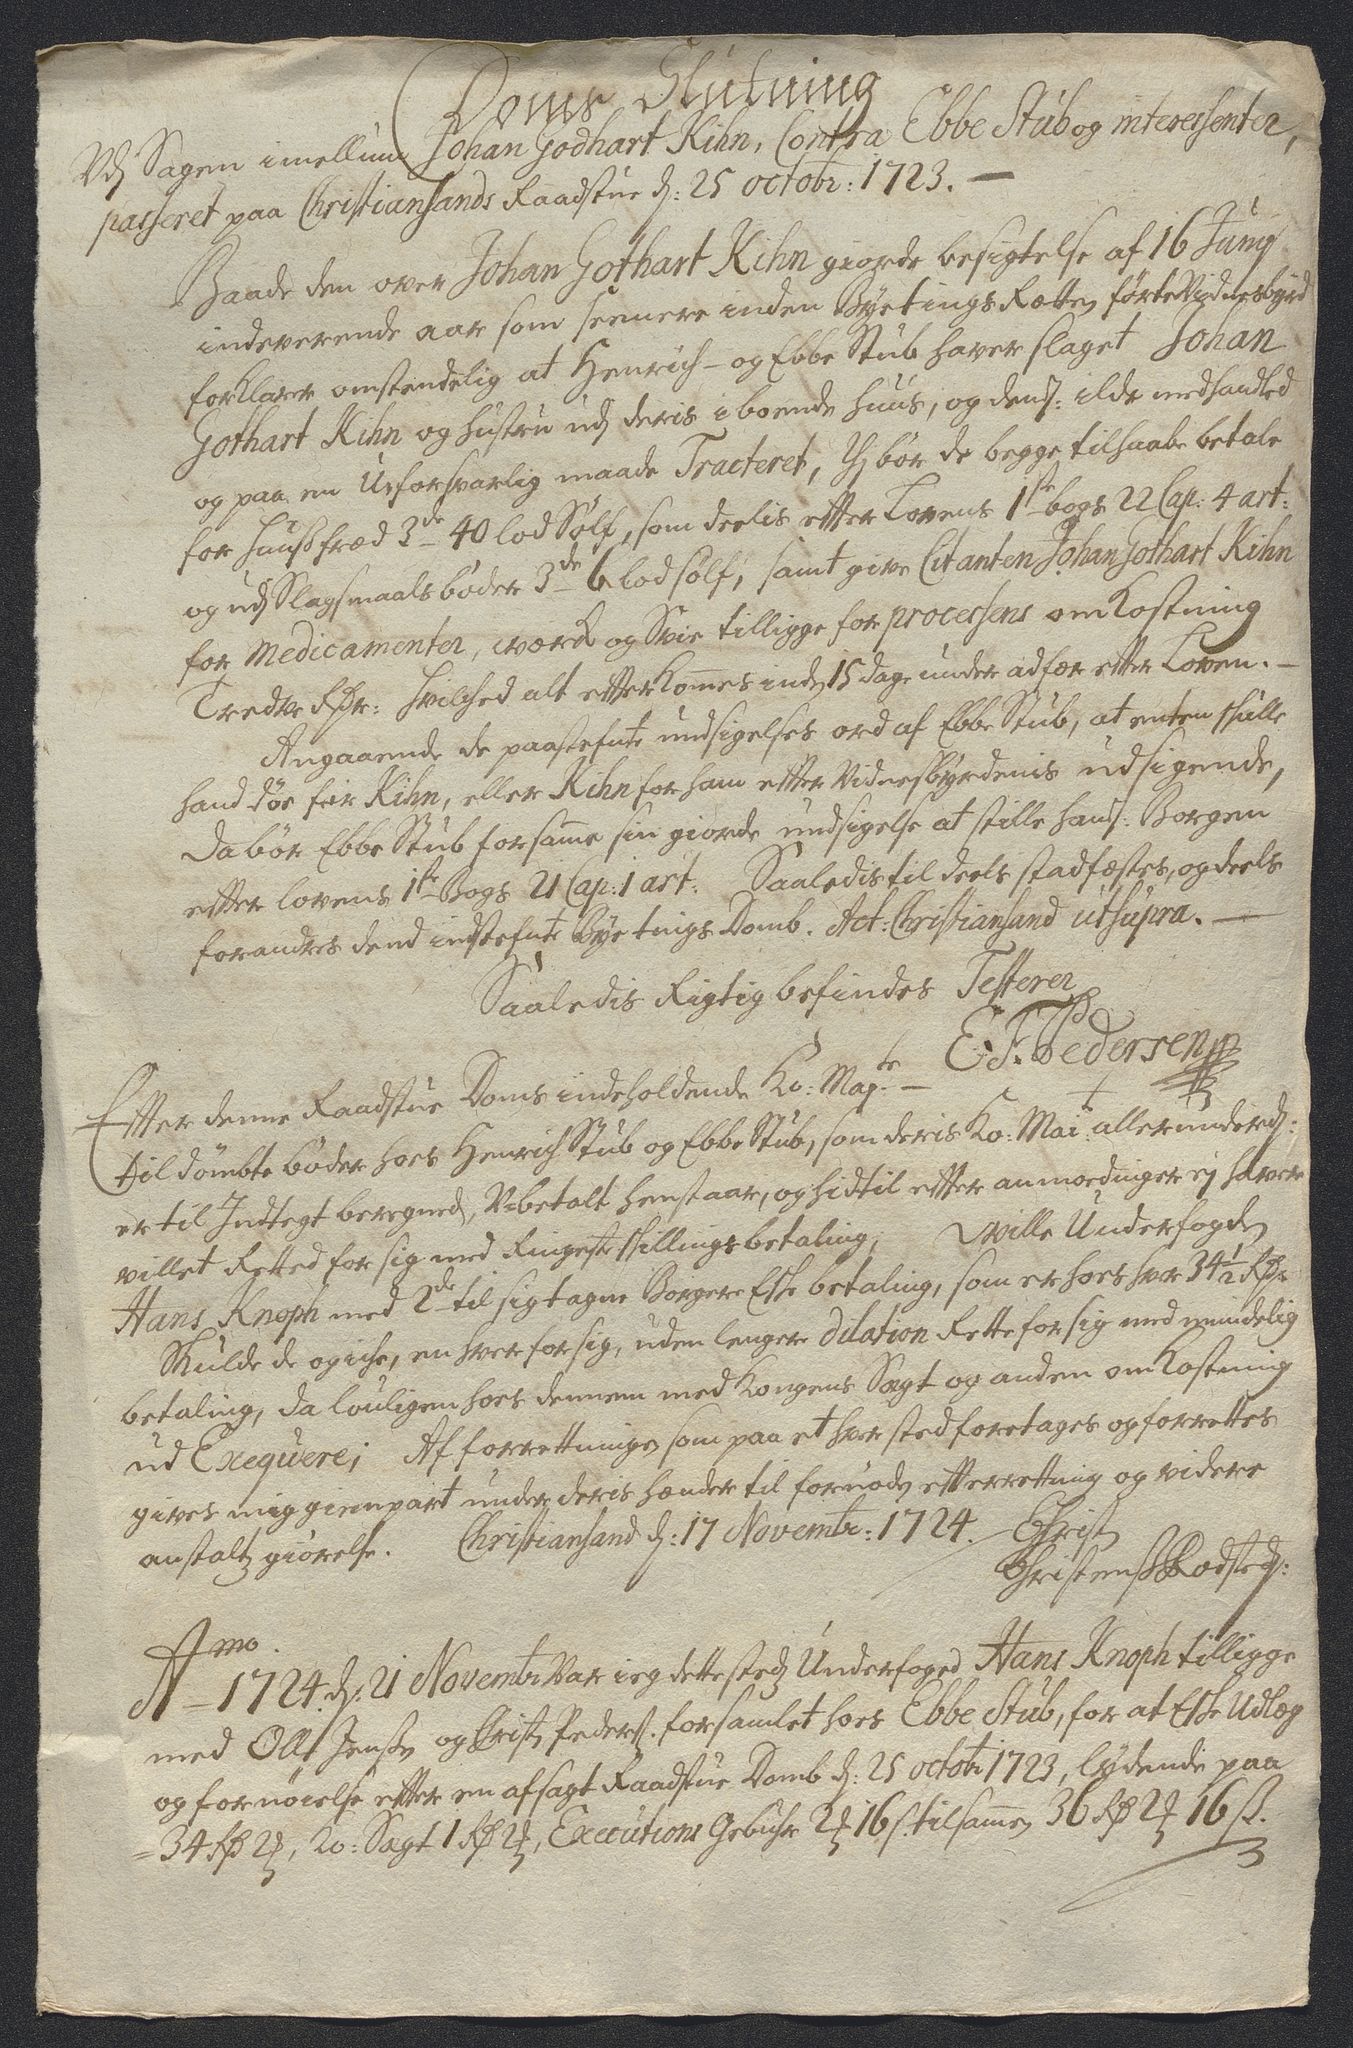 Doms Slutning
Udj Sagen imellum Johan Godhart Kihn, Contra Ebbe Stub og interessenter,
passeret paa Christiansands Raadstue d: 25 octobr: 1723. —
Baade den over Johan Gothart Kihn giorde besigtelse af 16 Junij
indeverende aar som seenere inden Byetings Rætten førte Vidnesbyrd
forklarer omstendelig at Henrich- og Ebbe Stub haver slaget Johan
Gothart Kihn og hustru udj deris iboende huus, og dens: ilde medhandled
og paa en Uforsvarlig maade Tracteret, Thj bør de begge tilhaabe betale
for haussfræd 3de 40 lod Sølf, som deelis effter Lovens 1ste bogs 22 Cap: 4 art:
og udj Slagsmaals bøder 3de 6 lod sølf, samt give Citanten Johan Gothart Kihn
for Medicamenter, værck og Svie tilligge for processens omkostning
Tredve Rdr: hvilched alt effterkommes inden 15 dage under adfær effter Loven. —
Angaaende de paastefnte undsigelses ord af Ebbe Stub, at enten skulle
hand døe for Kihn, eller Kihn for ham effter Vidnesbyrdenis udsigende,
da bør Ebbe Stub for samme sin giorde undsigelse at stille hans: Borgen
effter lovens 1ste Bogs 21 Cap: 1 art: Saaledis til deels stadfæstes, og deels
forandres dend indstefnte Byetings Domb. Act: Christiansand ut supra. —
Saaledis Rigtig befindes Testerer
E. F. Pedersen
Effter denne Raadstue Doms indeholdende Ko: Mayts —
tildømbte bøder hoes Henrich Stub og Ebbe Stub, som deris Ko: Mait: allerunderd:
er til Indtegt beregned, Ubetalt henstaar, og hidtil effter anmodninger ej haver
villet Retted for sig med Ringeste skillings betaling, wille Underfogden
Hans Knoph med 2de tilsigtagne Borgere Eske betaling, som er hoes hver 34½ Rdr
Skulde de og iche, en hver for sig, uden lengere dilation Rette for sig med mindelig
betaling, da louligen hoes dennem med Kongens Sagt og anden omkostning
ud Exeqvere; Af forrettningen som paa et hver sted foretages og forrettes
gives mig gienpart under deris hænder til fornøden effterretning og videre
anstaltz giørelse. Christiansand d: 17 Novembr: 1724. Christen
Christenss Rodsted:
Anno
1724. d: 21 Novembr Var ieg dette steds Underfoged Hans Knoph tilligge
med Olle Jenssen og Christen Peders: forsamlet hoes Ebbe Stub, for at Eske Udlæg
og fornøielse effter en afsagt Raadstue Domb d: 25 octobr 1723, lydende paa
34 Rdr 2 mk, Ko: Sagt 1 Rdr 2 mk, Executions Gebuhr 2 mk 16 s. tilsammen 36 Rdr 2 mk 16 s.